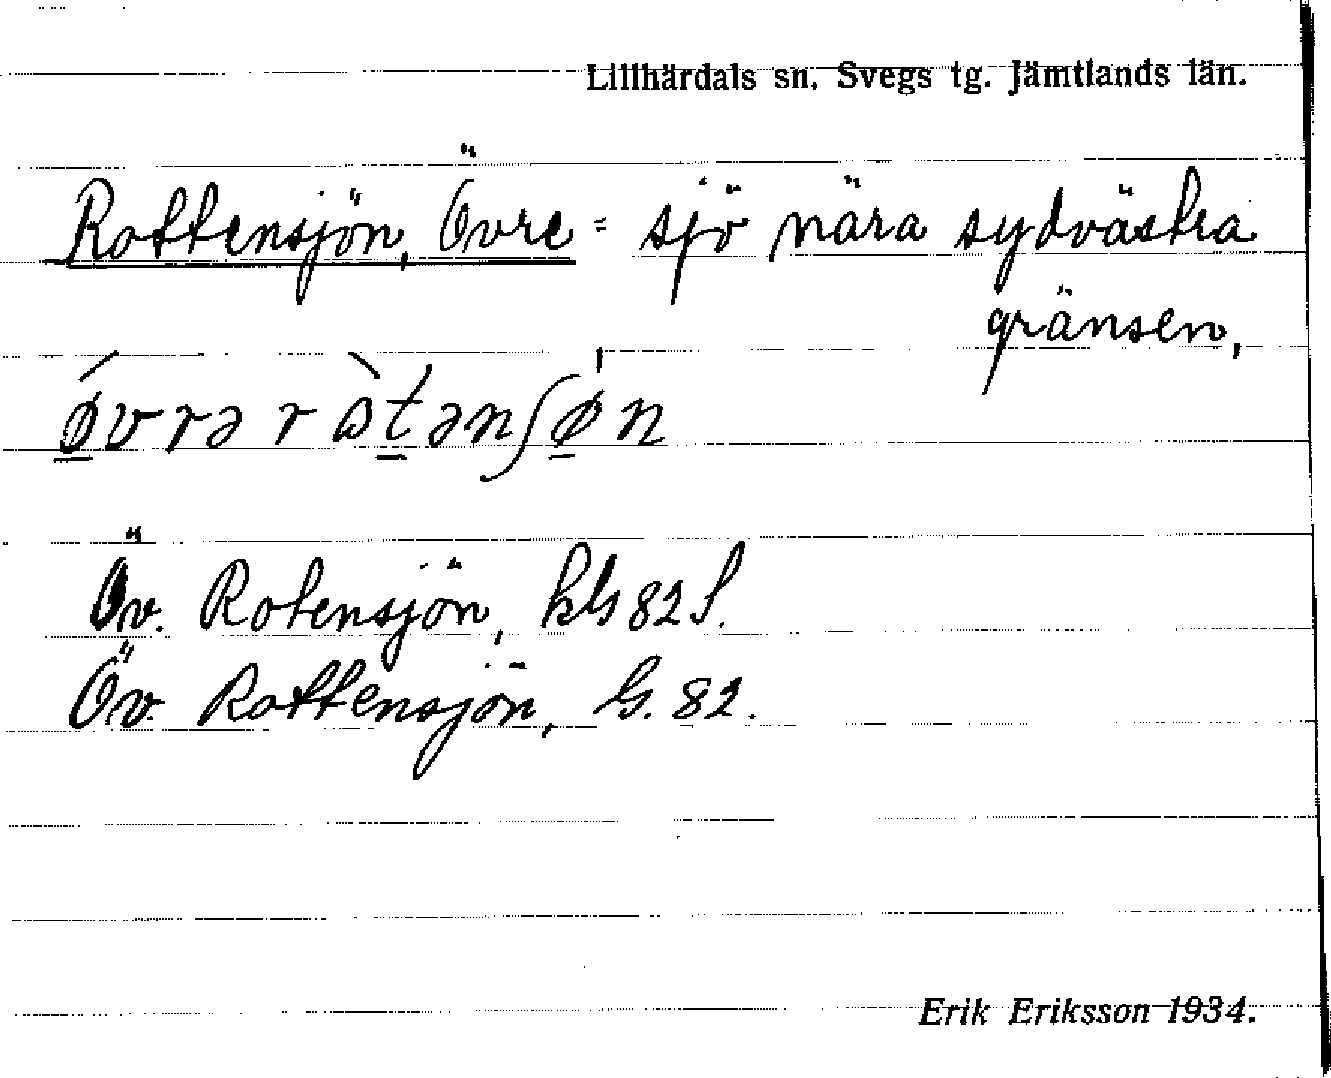 Lillhärdals sn. Svegs tg. Jämtlands län.
Rottensjön, Övre = sjö nära sydvästra
gränsen,
Öv. Rotensjön, kls 82 S.
Öv. Rottensjön, G. 82.
Erik Eriksson 1934.